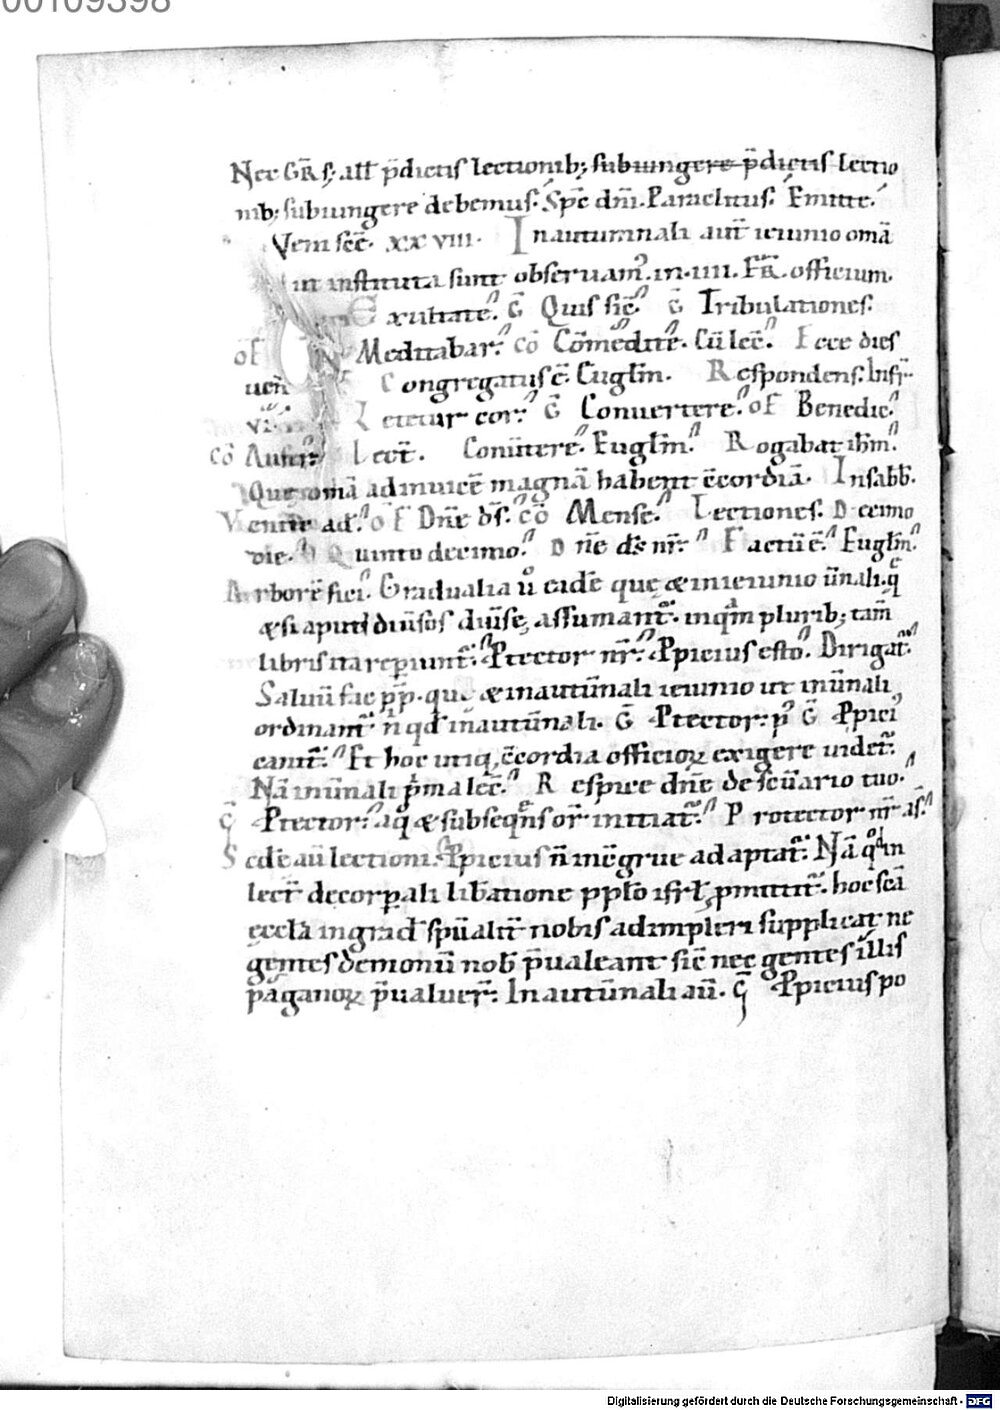 00109398
Nec GR̄ s; all̄ p̄dictis lectionib; subiungere p̄dictis lectio
nib; subiungere debemus. Sp̄c dn̄i. Paraclitus. Emitte.
Veni sc̄e. xxviii. In autumnali aut̄ ieiunio omā
instituta sunt observam̄. in. iiii. FR̄. officium.
Exultate. G̅ Quis sic̄. G̅ Tribulationes.
oF Meditabar. cō Cōmedite. Cū lec̄. Ecce dies
ueń Congregatus ē. Euglm̄. Respondens. Insr̄.
vi. Letetur cor. G̅ Convertere. oF Benedic.
cō Aufer. Lect̄. Convīttere. Euglm̄. Rogabat ih̄m.
Que omā ad invicē magnā habent c̄cordiā. In sabb̄.
Venite ad. oF Dn̄e ds̄. cō Mense. Lectiones. Decimo
die. Quinto decimo. Dn̄e ds̄ nr̄. Factū ē. Euglm̄.
Arborē fici. Gradualia ů eadē que & in ieiunio ūnali. q̄
& si apud diūsos diūse assumant̄. in qm̄ plurib; tam̄
libris ita repiunt̄. Ptector nr̄. Ppicius esto. Dirigat̄.
Saluū fac pp̄. que & in autūnali ieiunio ut in ūnali
ordinant̄ n̄ qd̄ in autūnali. G̅ Ptector. p̄ G̅ Ppici
cant̄. Et hoc utiq; c̄cordia officioꝝ exigere videt̄.
Nā in ūnali p̄ma lec̄. Respice dn̄e de sc̄uario tuo.
G̅ Ptector. a q̄ & subseq̄ns or̄ initiat̄. Protector nr̄ as̄.
Sedē aū lectioni. Ppicius n̄ inc̄grue adaptat̄. Nā q̄d in
lect̄ de corpali lib̄atione pplo isrl̄ pmittit̄. hoc sc̄ā
ęccl̄a in grad̄ sp̄ualit̄ nobis adimpleri supplicat ne
gentes demonū nob̄ p̄ualeant sic̄ nec gentes illis
paganoꝝ p̄ualuer̄. In autūnali aū. G̅ Ppicius po
Digitalisierung gefördert durch die Deutsche Forschungsgemeinschaft - DFG